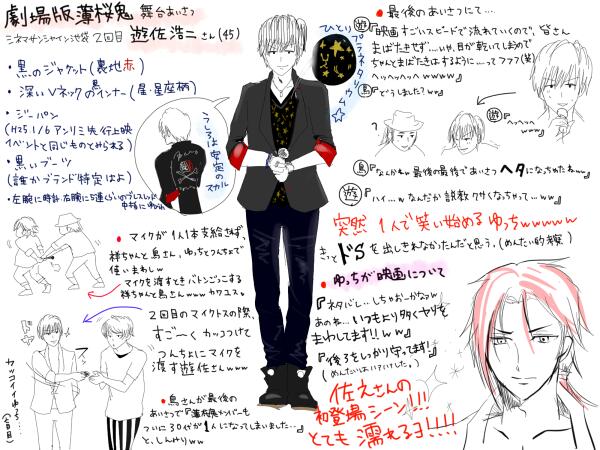 劇場版薄桜鬼 舞台あいさつ
シネマサンシャイン池袋 2回目 遊佐浩二さん(45)
・黒のジャケット(裏地赤)
・深いVネック黒のインナー(星・星座柄)
・ジーパン
(H25.1/6 アンリミ先行上映
イベントと同じものとみられる)
・黒いブーツ
(誰かブランド特定はよ)
・左腕に時計 右腕に5連くらいのブレスレット
うしろは安定の
スカル
ひとりプラネタリウム☆
・マイクが1人1本支給せず、
祥ちゃんと鳥さん、ゆっちとつんちょで
使いまわしw
マイクを渡すときバトンごっこする
祥ちゃんと鳥さんwww カワユス。
2回目のマイクトスの際、
すご〜くカッコつけて
つんちょにマイクを
渡す遊佐さんwww
カッコイイゆっち…
(2回目)
・鳥さんが最後の
あいさつで『薄桜鬼メンバーも
ついに30代が1人になってしまいました…』
と、しんみりww
・最後のあいさつにて…
遊『映画すごいスピードで流れていくので、皆さん
まばたきせず…いや、目が乾いてしまうので
ちゃんとまばたきはするように…ってフフフ(笑)
ヘッヘッヘッヘwwww』
鳥『どうしました?ww』
?
遊『ヘッヘッヘ
ww』
鳥『なんかねw 最後の最後であいさつヘタになっちゃたねww』
遊『ハイ…wなんだか説教クサくなっちゃって…ww』
突然1人で笑い始めるゆっちwwwww
きっとドSを出しきれなかったんだと思う。(めんたい的考察)
・ゆっちが映画について
『ネタバレ…しちゃおーかなっw
あのね…いつもより多くヤリを
まわしてます!!ww』
『後ろをしっかり守ってます!』
佐之さんの
初登場シーン!!!
とても濡れるヨ!!!!